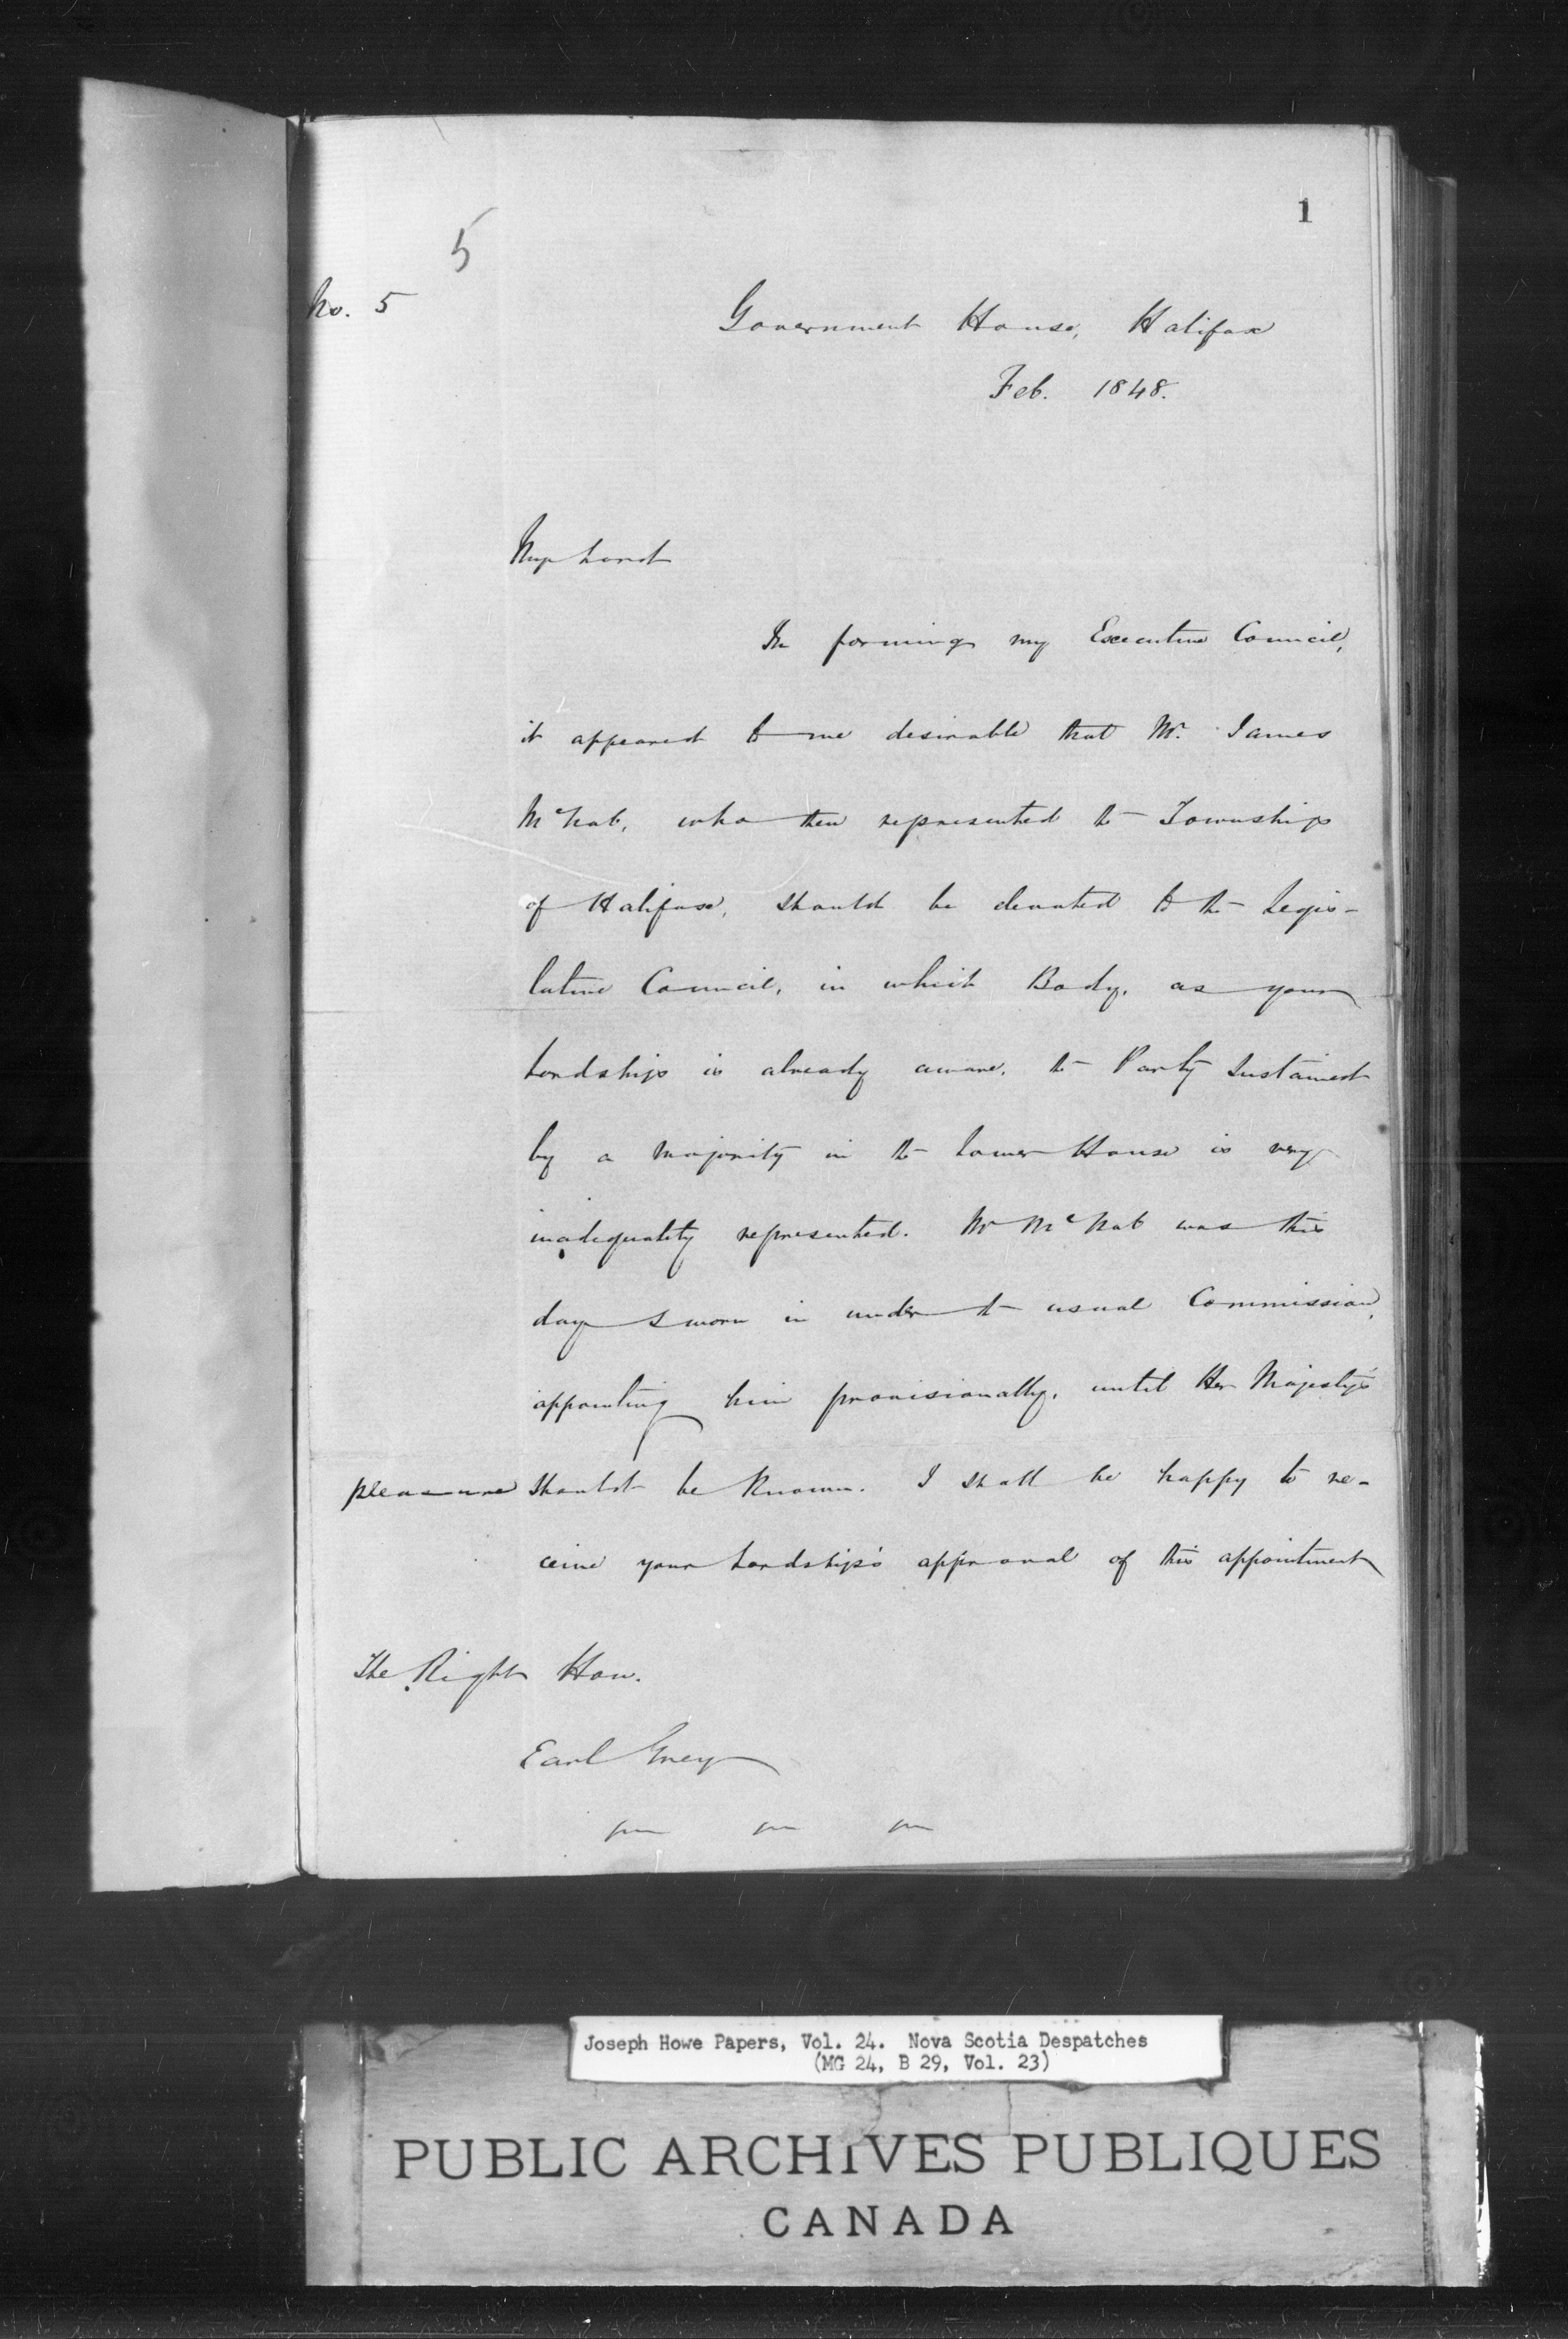 1
5
No. 5
Government House, Halifax
Feb. 1848.
My Lord
In forming my Executive Council,
it appeared to me desirable that Mr. James
McNab, who then represented the Township
of Halifax, should be elevated to the Legis-
lative Council, in which Body, as your
Lordship is already aware, the Party sustained
by a majority in the Lower House is very
inadequately represented. Mr McNab was this
day sworn in under the usual Commission,
appointing him provisionally, until Her Majesty's
pleasure should be known. I shall be happy to re-
ceive your Lordship's approval of this appointment
The Right Hon.
Earl Grey
Joseph Howe Papers, Vol. 24. Nova Scotia Despatches
(MG 24, B 29, Vol. 23)
PUBLIC ARCHIVES PUBLIQUES
CANADA